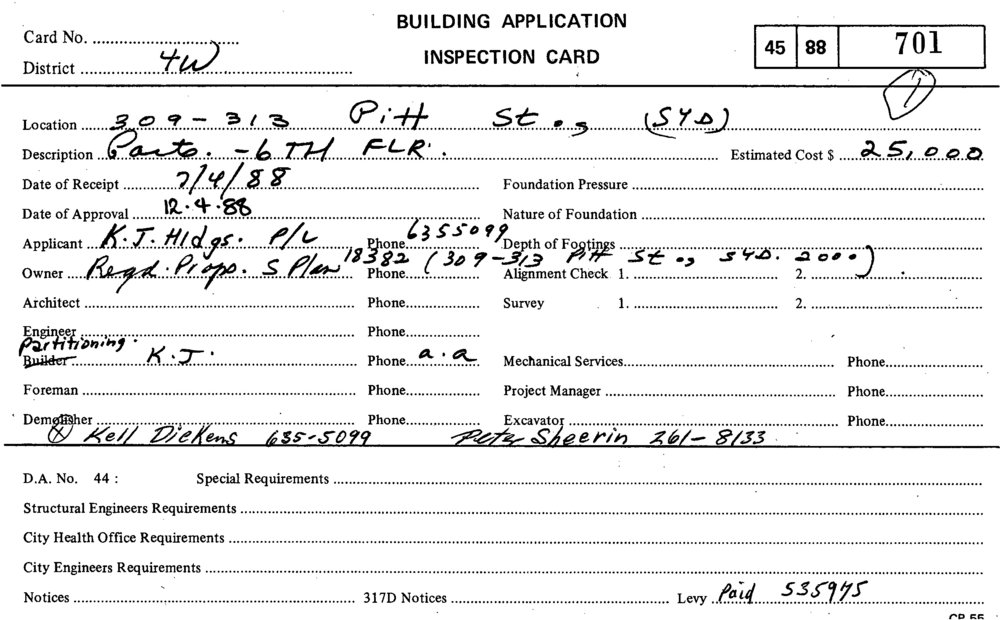 BUILDING APPLICATION
Card No.
INSPECTION CARD
45 88 701
District 4W
1
Location 309-313 Pitt St., (SYD)
Description Parts. - 6TH FLR. Estimated Cost $ 25,000
Date of Receipt 7/4/88 Foundation Pressure
Date of Approval 12.4.88 Nature of Foundation
Applicant K.J. Hldgs. P/L Phone 6355099 Depth of Footings
Owner Regd. Props. S Plan 18382 (309-313 Pitt St., SYD. 2000) Phone Alignment Check 1. 2.
Architect Phone Survey 1. 2.
Engineer Phone
Partitioning.
Builder K.J. Phone a.a Mechanical Services Phone
Foreman Phone Project Manager Phone
Demolisher Phone Excavator Phone
X Kell Dickens 635-5099 Peter Sheerin 261-8133
D.A. No. 44 : Special Requirements
Structural Engineers Requirements
City Health Office Requirements
City Engineers Requirements
Notices 317D Notices Levy Paid 535975
CP 55